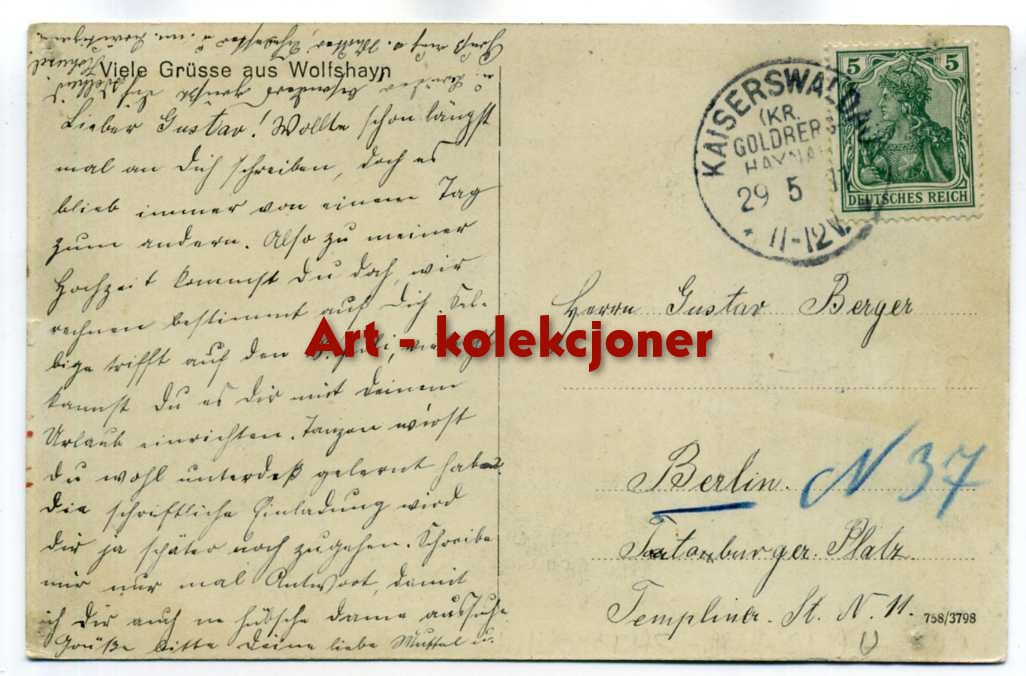 Viele Grüsse aus Wolfshayn
Lieber Gustav! Wollte schon längst
mal an Dich schreiben, doch es
blieb immer von einem Tag
zum andern. Also zu meiner
Hochzeit kommst Du doch, wir
rechnen bestimmt auf Dich. Sel-
bige trifft auf den Juli,
kannst Du es Dir mit Deinem
Urlaub einrichten. Tanzen wirst
Du wohl unterdeß gelernt haben.
Die schriftliche Einladung wird
Dir ja später noch zugehen. Schreibe
mir nur mal Antwort, damit
ich Dir auch ne hübsche Dame aussuche
Grüße bitte Deine liebe Muttel u.
KAISERSWALDAU
(KR.
GOLDBERG
HAYNAU
29 5
11-12V.
5 5
DEUTSCHES REICH
Herrn Gustav Berger
Berlin. N 37
Platz
Templiner St. N. 11.
758/3798
Art - kolekcjoner